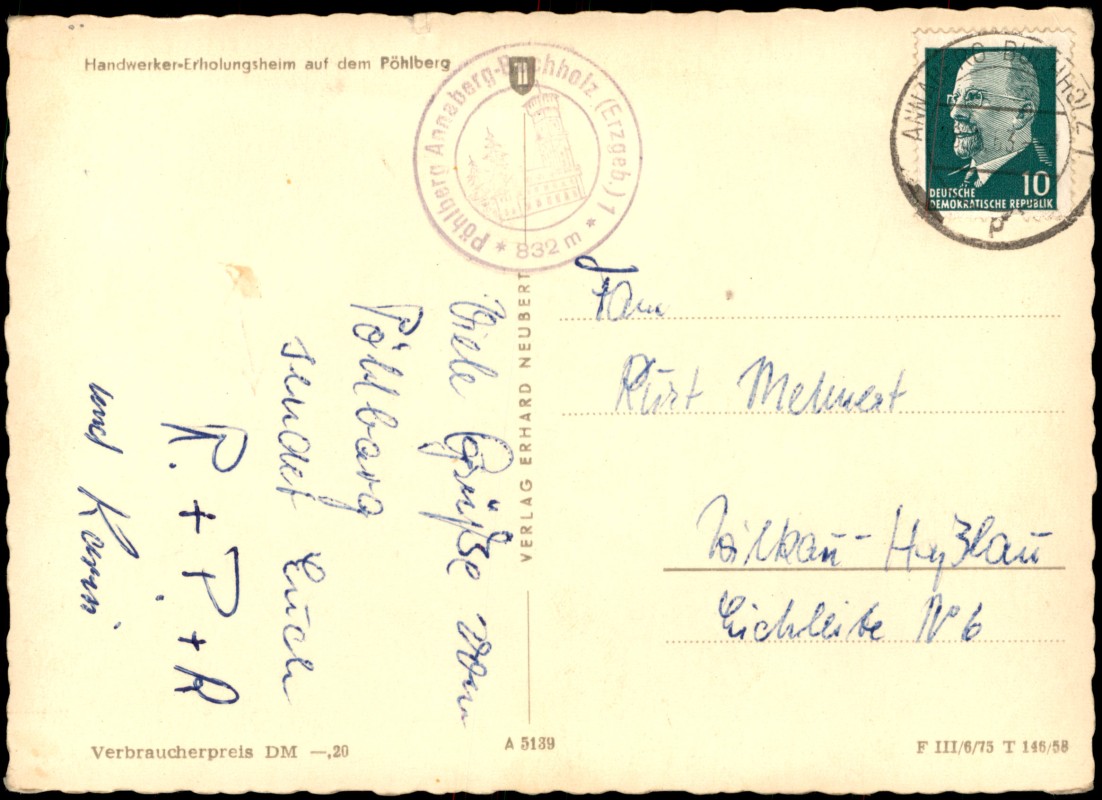 Handwerker-Erholungsheim auf dem Pöhlberg
Pöhlberg Annaberg-Buchholz (Erzgeb.) 1
* 832 m *
ANNABERG BUCHHOLZ 1
10
DEUTSCHE
DEMOKRATISCHE REPUBLIK
Viele Grüße vom
Pöhlberg
sendet Euch
R. + P. + R
und Karin
VERLAG ERHARD NEUBERT
Fam
Kurt Mehnert
Wilkau-Haßlau
Eichleite Nº 6
Verbraucherpreis DM —,20
A 5139
F III/6/75 T 146/58